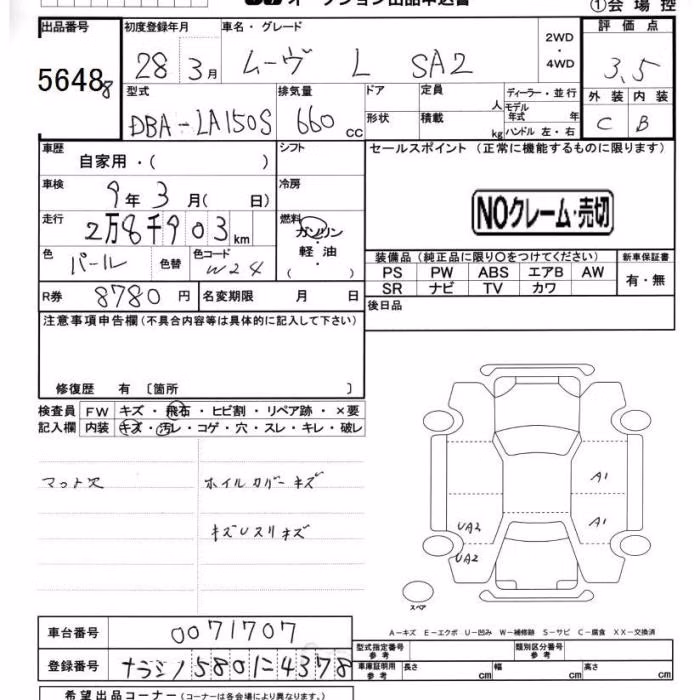 オークション出品申込書
①会場控
出品番号
56488
初度登録年月
28年 3月
車名・グレード
ムーヴ L SA2
2WD・4WD
評価点
3.5
外装 内装
C B
型式
DBA-LA150S
排気量
660 cc
ドア
形状
定員 人
積載 kg
ディーラー・並行
モデル年式 年
ハンドル 左・右
車歴
自家用・( )
シフト
セールスポイント(正常に機能するものに限ります)
車検
9年3月( 日)
冷房
NOクレーム・売切
走行
2万8千903km
燃料
ガソリン・軽油
( )
色
パール
色替
色コード
W24
装備品(純正品に限り○をつけてください)
PS PW ABS エアB AW
SR ナビ TV カワ
新車保証書
有・無
R券 8780円
名変期限 月 日
後日品
注意事項申告欄(不具合内容等は具体的に記入して下さい)
修復歴 有〔箇所 〕
検査員記入欄
FW キズ・飛石・ヒビ割・リペア跡・×要
内装 キズ・汚レ・コゲ・穴・スレ・キレ・破レ
マット欠
ホイルカバーキズ
キズUスリキズ
A1
A1
UA2
UA2
スペア
A-キズ E-エクボ U-凹み W-補修跡 S-サビ C-腐食 XX-交換済
車台番号
0071707
登録番号
ナラシノ580に4378
型式指定番号 参考
類別区分番号
車庫証明用 参考
長さ cm
幅 cm
高さ cm
希望出品コーナー(コーナーは各会場により異なります。)